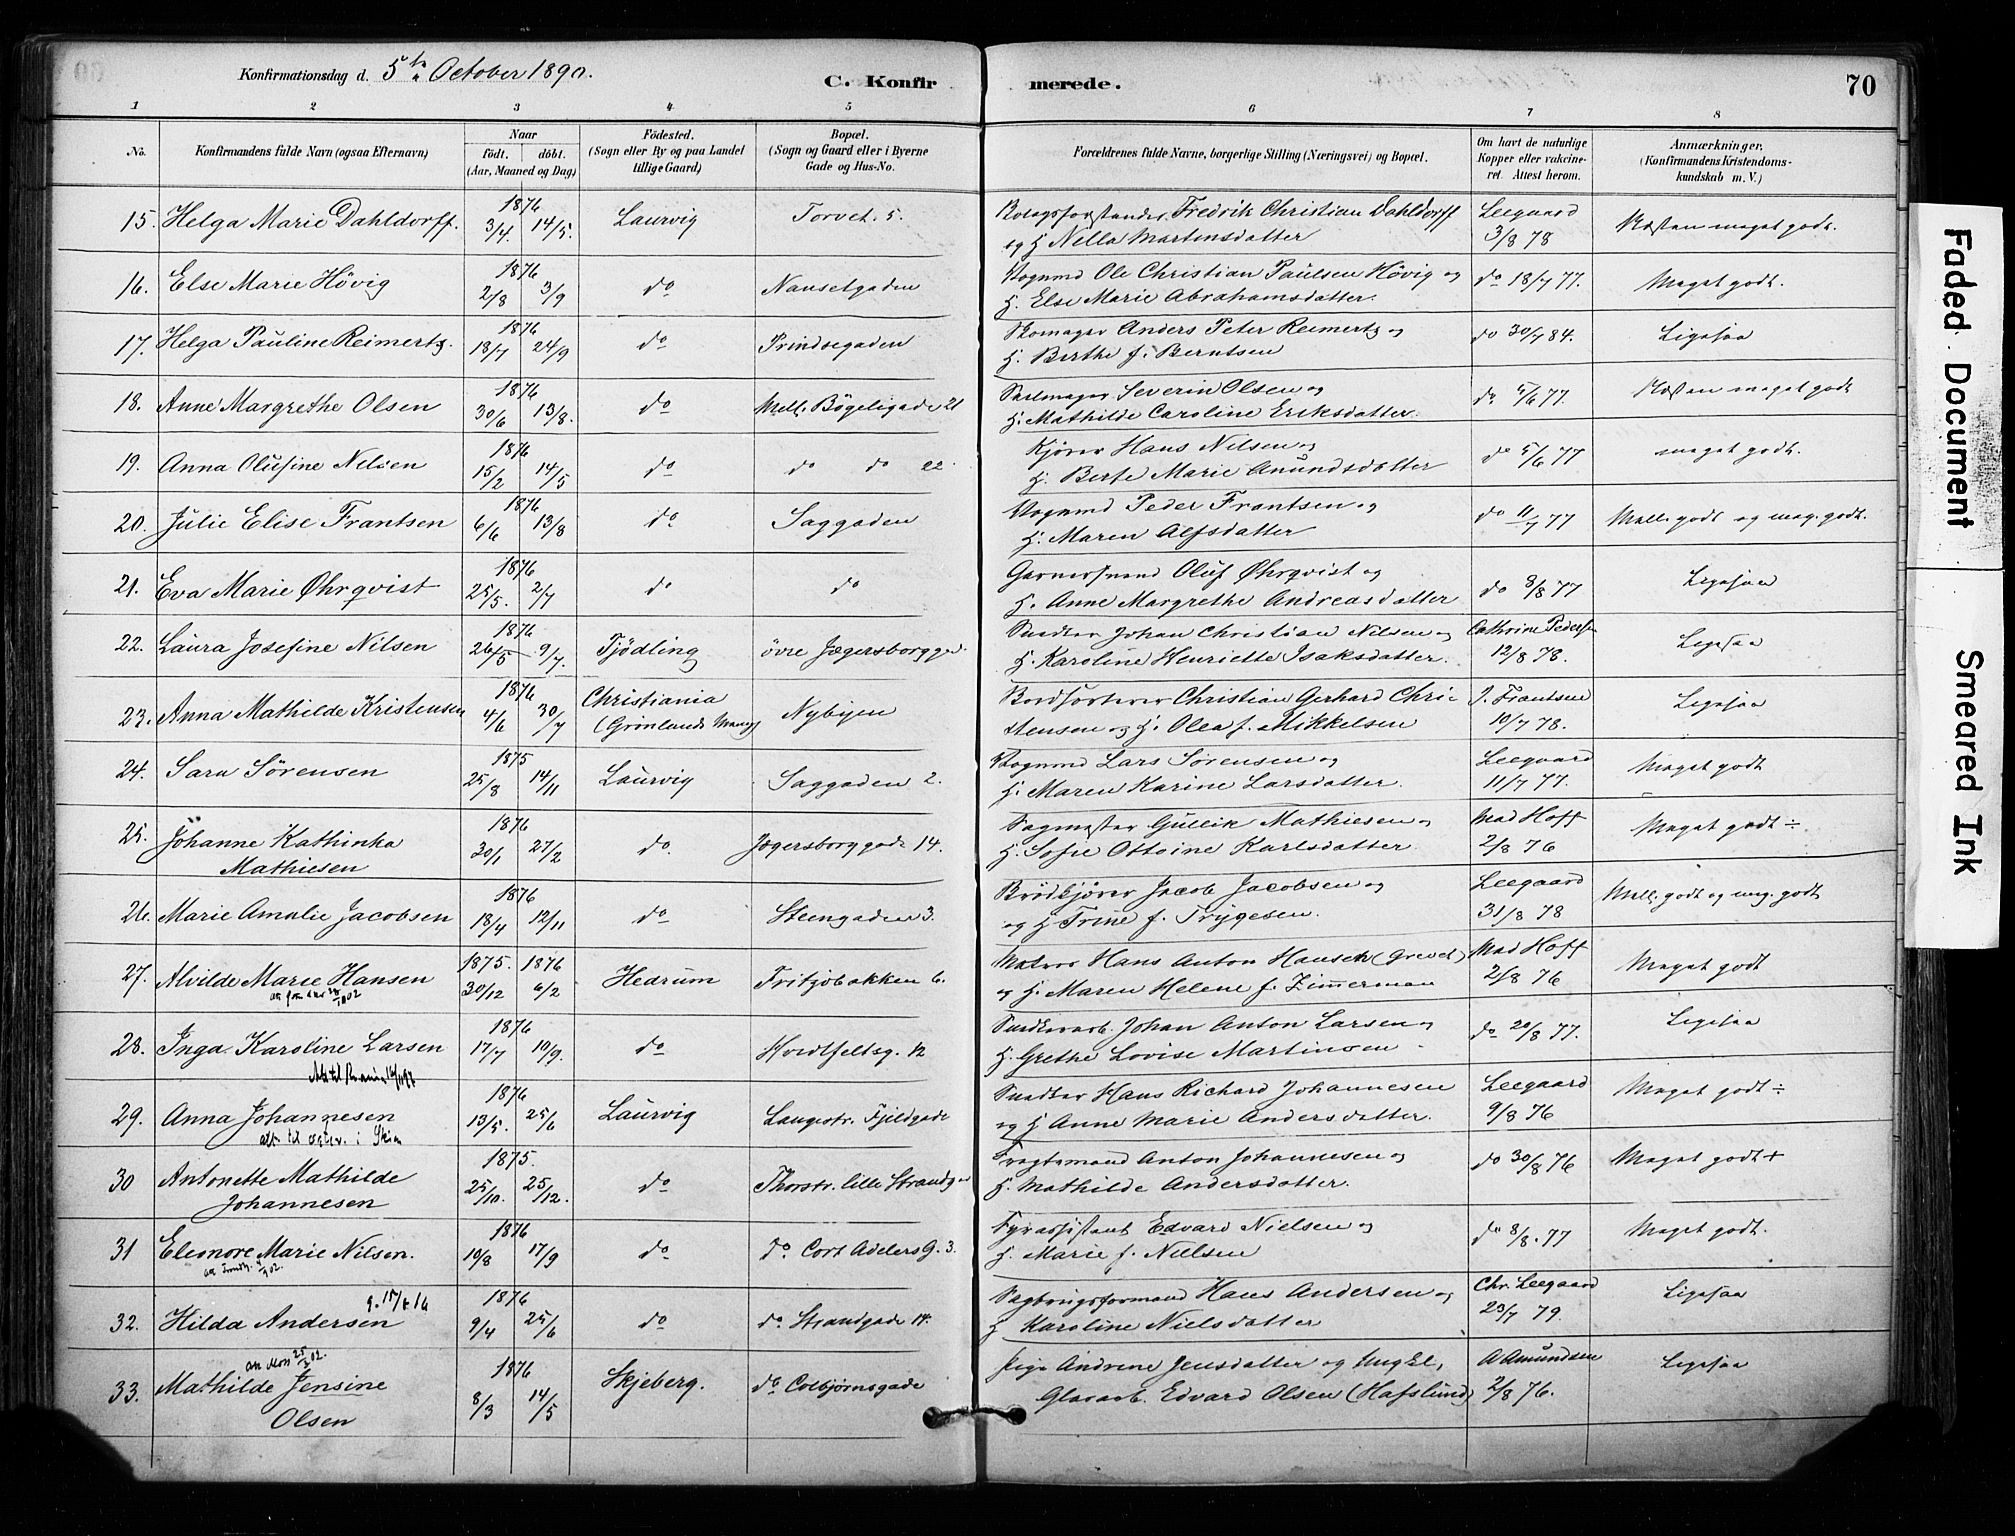 Konfirmationsdag d. 5te October 1890.
C. Konfirmerede.
70
1 2 3 4 5 6 7 8
No. Konfirmandens fulde Navn (ogsaa Efternavn) Naar födt. döbt. (Aar, Maaned og Dag) Födested. (Sogn eller By og paa Landet tillige Gaard) Bopæl. (Sogn og Gaard eller i Byerne Gade og Hus-No. Forældrenes fulde Navne, borgerlige Stilling (Næringsvei) og Bopæl. Om havt de naturlige Kopper eller vakcineret. Attest herom. Anmærkninger. (Konfirmandens Kristendomskundskab m. V.)
15. Helga Marie Dahldorff. 1876 3/4. 14/5. Laurvig Torvet. 5. Fredrik Christian Dahldorff
og H. Nella Martinsdatter Leegaard 3/8 78 Næsten meget godt.
16. Else Marie Hövig 1876 2/8 3/9 do Nansetgaden Vognmd Ole Christian Paulsen Hövig og
H. Else Marie Abrahamsdatter. do 18/7 77. Meget godt.
17. Helga Pauline Reimertz. 1876 18/7 24/9 do Prindsegaden Skomager Anders Peter Reimertz og
H. Birthe f. Berntsen do 30/7 84. Ligesaa
18. Anne Margrethe Olsen 1876 30/6 13/8. do Mell. Bögeligade 21 Seilmager Severin Olsen og
H. Mathilde Caroline Eriksdatter. do 5/6 77. Næsten meget godt
19. Anna Olufine Nilsen 1876 15/2 14/5 do do do 22. Kjörer Hans Nilsen og
H. Berte Marie Amundsdatter do 5/6 77 meget godt.
20. Julie Elise Frantsen 1876 6/6 13/8 do Saggaden Vognmd Peder Frantsen og
H. Maren Alfsdatter do 11/7 77 Mell. godt og meg. godt.
21. Eva Marie Øhrqvist 1876 25/5. 2/7 do do Garversvend Oluf Øhrqvist og
H. Anne Margrethe Andreasdatter do 8/8 77 Ligesaa
22. Laura Josefine Nilsen 1876 26/5 9/7. Tjödling övre Jægersborgga. Snedker Johan Christian Nilsen og
H. Karoline Henriette Isaksdatter. Cathrine Pedersen 12/8 78. Ligesaa
23. Anna Mathilde Kristensen 1876 4/6 30/7 Christiania (Grönlands Menig) Nybyen Bordsorterer Christian Gerhard Christensen og H. Olea f. Mikkelsen J. Frantsen 10/7 78. Ligesaa
24. Sara Sörensen 1875 25/8 14/11 Laurvig Saggaden 2. Vognmd Lars Sörensen og
H. Maren Karine Larsdatter. Leegaard 11/7 77. Meget godt
25. Johanne Kathinka Mathiesen 1876 30/1 27/2 do. Jægersborggade 14. Sagmester Gullik Mathiesen og
H. Sofie Ottoine Karlsdatter. Mad Hoff 2/8 76 Meget godt ÷
26. Marie Amalie Jacobsen 1876 18/4 12/11 do Steengaden 3. Brödkjörer Jacob Jacobsen og
og H Trine f. Trygesen. Leegaard 31/8 78 Mell. godt og meg. godt
27. Alvilde Marie Hansen 1875. 1876 30/12 6/2 Hedrum Fritzöbakken 6. Hans Anton Hansen
og H. Maren Helene f. Zimmerman Mad Hoff 2/8 76 Meget godt
28. Inga Karoline Larsen 1876 17/7 10/9. do Hvidtfeltsg. 12 Snedkerarb. Johan Anton Larsen og
H. Grethe Lovise Martinsen do 20/8 77. Ligesaa
29. Anna Johannesen 1876 13/5. 25/6 Laurvig Langestr. Fjeldgade Snedker Hans Richard Johannesen
og H Anne Marie Andersdatter. Leegaard 9/8 76 Meget godt ÷
30 Antonette Mathilde Johannesen 1875. 25/10. 25/12. do Thorstr. lille Strandg. Fragtemand Anton Johannesen og
H. Mathilde Andersdatter. do 30/8 76 Meget godt +
31 Eleonore Marie Nilsen. 1876 10/8 17/9 do do Cort Adelers G. 3. Fyrassistent Edvard Nielsen og
H. Marie f. Nielsen do 8/8. 77 Meget godt.
32. Hilda Andersen 1876 9/4 25/6 do do Strandgade 14. Sagbrugsformand Hans Andersen og
H Karoline Nielsdatter Chr. Leegaard 23/7 79. Ligesaa
att Moss 25/3 02.
33. Mathilde Jensine Olsen 1876 8/3 14/5 Skjeberg. do Colbjörnsgade Pige Andrine Jensdatter og Ungkl.
Glasarb. Edvard Olsen (Hafslund) A Amundsen 2/8 76. Ligesaa
Faded Document
Smeared Ink